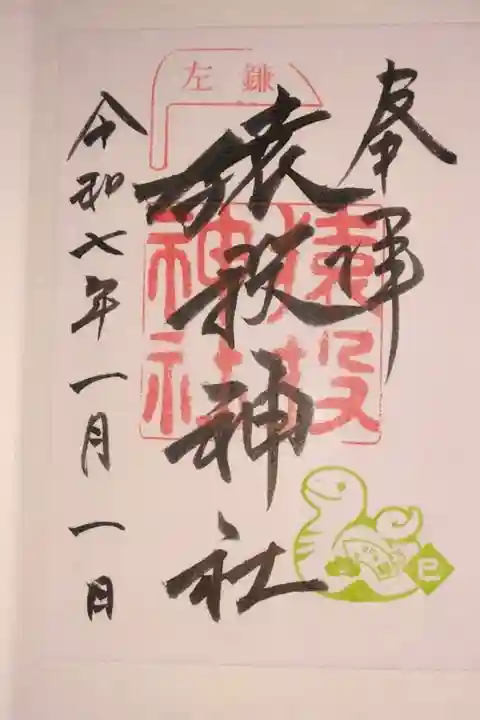 奉拝
左鎌
猿投神社
猿投神社
令和七年一月一日
巳